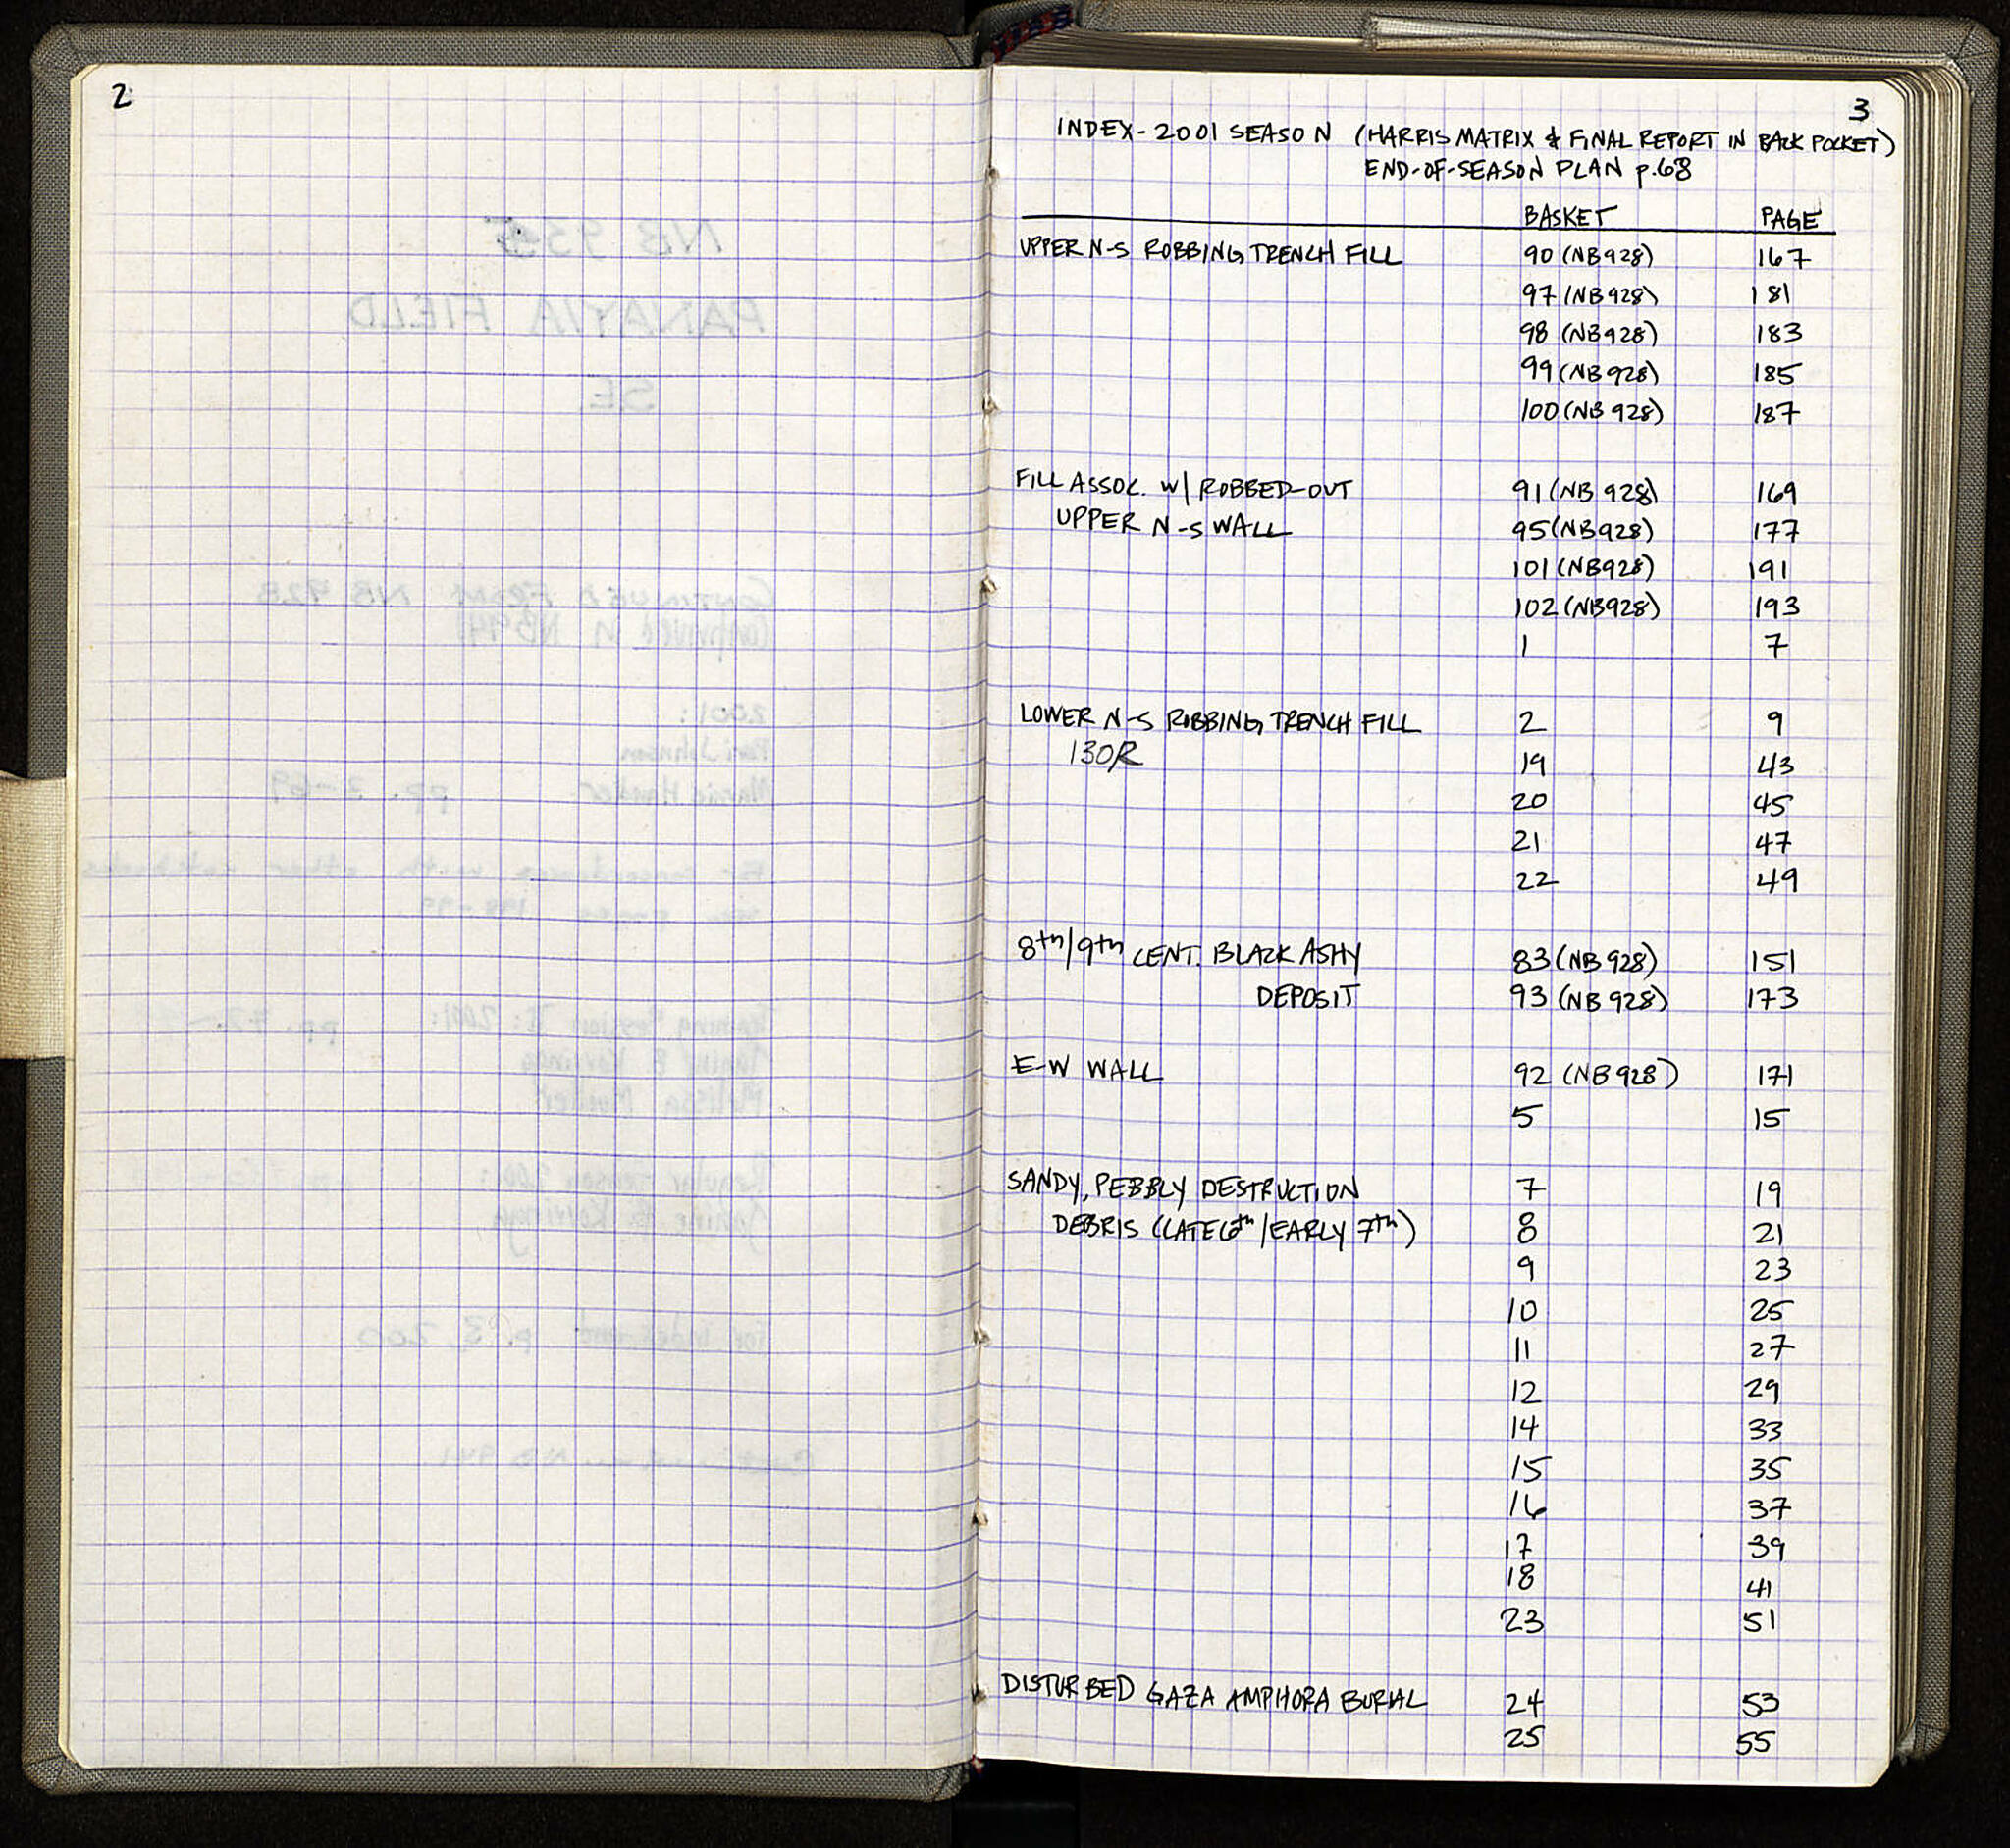 2
3
INDEX-2001 SEASON (HARRIS MATRIX & FINAL REPORT IN BACK POCKET)
END-OF-SEASON PLAN p.68
BASKET PAGE
UPPER N-S ROBBING TRENCH FILL 90 (NB928) 167
97 (NB928) 181
98 (NB928) 183
99 (NB928) 185
100 (NB928) 187
FILL ASSOC. W/ ROBBED-OUT 91 (NB 928) 169
UPPER N-S WALL 95 (NB928) 177
101 (NB928) 191
102 (NB928) 193
1 7
LOWER N-S ROBBING TRENCH FILL 2 9
130R 19 43
20 45
21 47
22 49
8th/9th CENT. BLACK ASHY 83 (NB 928) 151
DEPOSIT 93 (NB 928) 173
E-W WALL 92 (NB 928) 171
5 15
SANDY, PEBBLY DESTRUCTION 7 19
DEBRIS (LATE 6th/EARLY 7th) 8 21
9 23
10 25
11 27
12 29
14 33
15 35
16 37
17 39
18 41
23 51
DISTURBED GAZA AMPHORA BURIAL 24 53
25 55